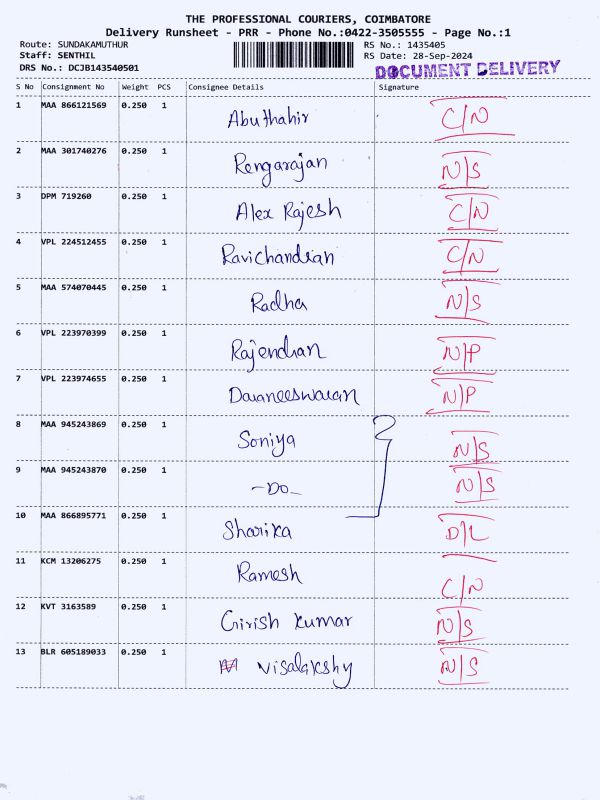 THE PROFESSIONAL COURIERS, COIMBATORE
Delivery Runsheet - PRR - Phone No.:0422-3505555 - Page No.:1
Route: SUNDAKAMUTHUR RS No.: 1435405
Staff: SENTHIL RS Date: 28-Sep-2024
DRS No.: DCJB143540501 DOCUMENT DELIVERY
S No Consignment No Weight PCS Consignee Details Signature
1 MAA 866121569 0.250 1 Abuthahir C/N
2 MAA 301740276 0.250 1 Rengarajan N/S
3 DPM 719260 0.250 1 Alex Rajesh C/N
4 VPL 224512455 0.250 1 Ravichandran C/N
5 MAA 574070445 0.250 1 Radha N/S
6 VPL 223970399 0.250 1 Rajendran N/P
7 VPL 223974655 0.250 1 Daraneeswaran N/P
8 MAA 945243869 0.250 1 Soniya N/S
9 MAA 945243870 0.250 1 -Do- N/S
10 MAA 866895771 0.250 1 Sharika D/L
11 KCM 13206275 0.250 1 Ramesh C/N
12 KVT 3163589 0.250 1 Girish Kumar N/S
13 BLR 605189033 0.250 1 Visalakshy N/S